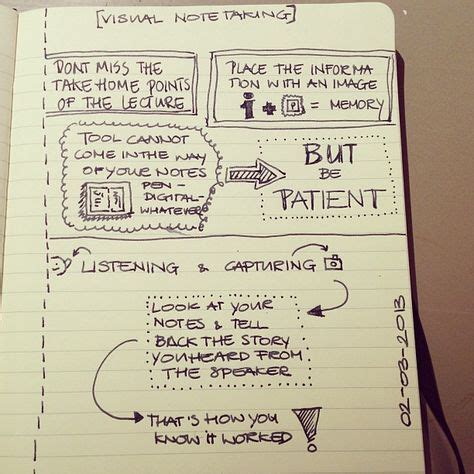 [VISUAL NOTETAKING]
DONT MISS THE
TAKE HOME POINTS
OF THE LECTURE
PLACE THE INFORMA
TION WITH AN IMAGE
i + P = MEMORY
TOOL CANNOT
COME IN THE WAY
OF YOUR NOTES
PEN -
DIGITAL -
WHATEVER
BUT
BE
PATIENT
LISTENING & CAPTURING
LOOK AT YOUR
NOTES & TELL
BACK THE STORY
YOU HEARD FROM
THE SPEAKER
THAT'S HOW YOU
KNOW IT WORKED !
02-03-2013